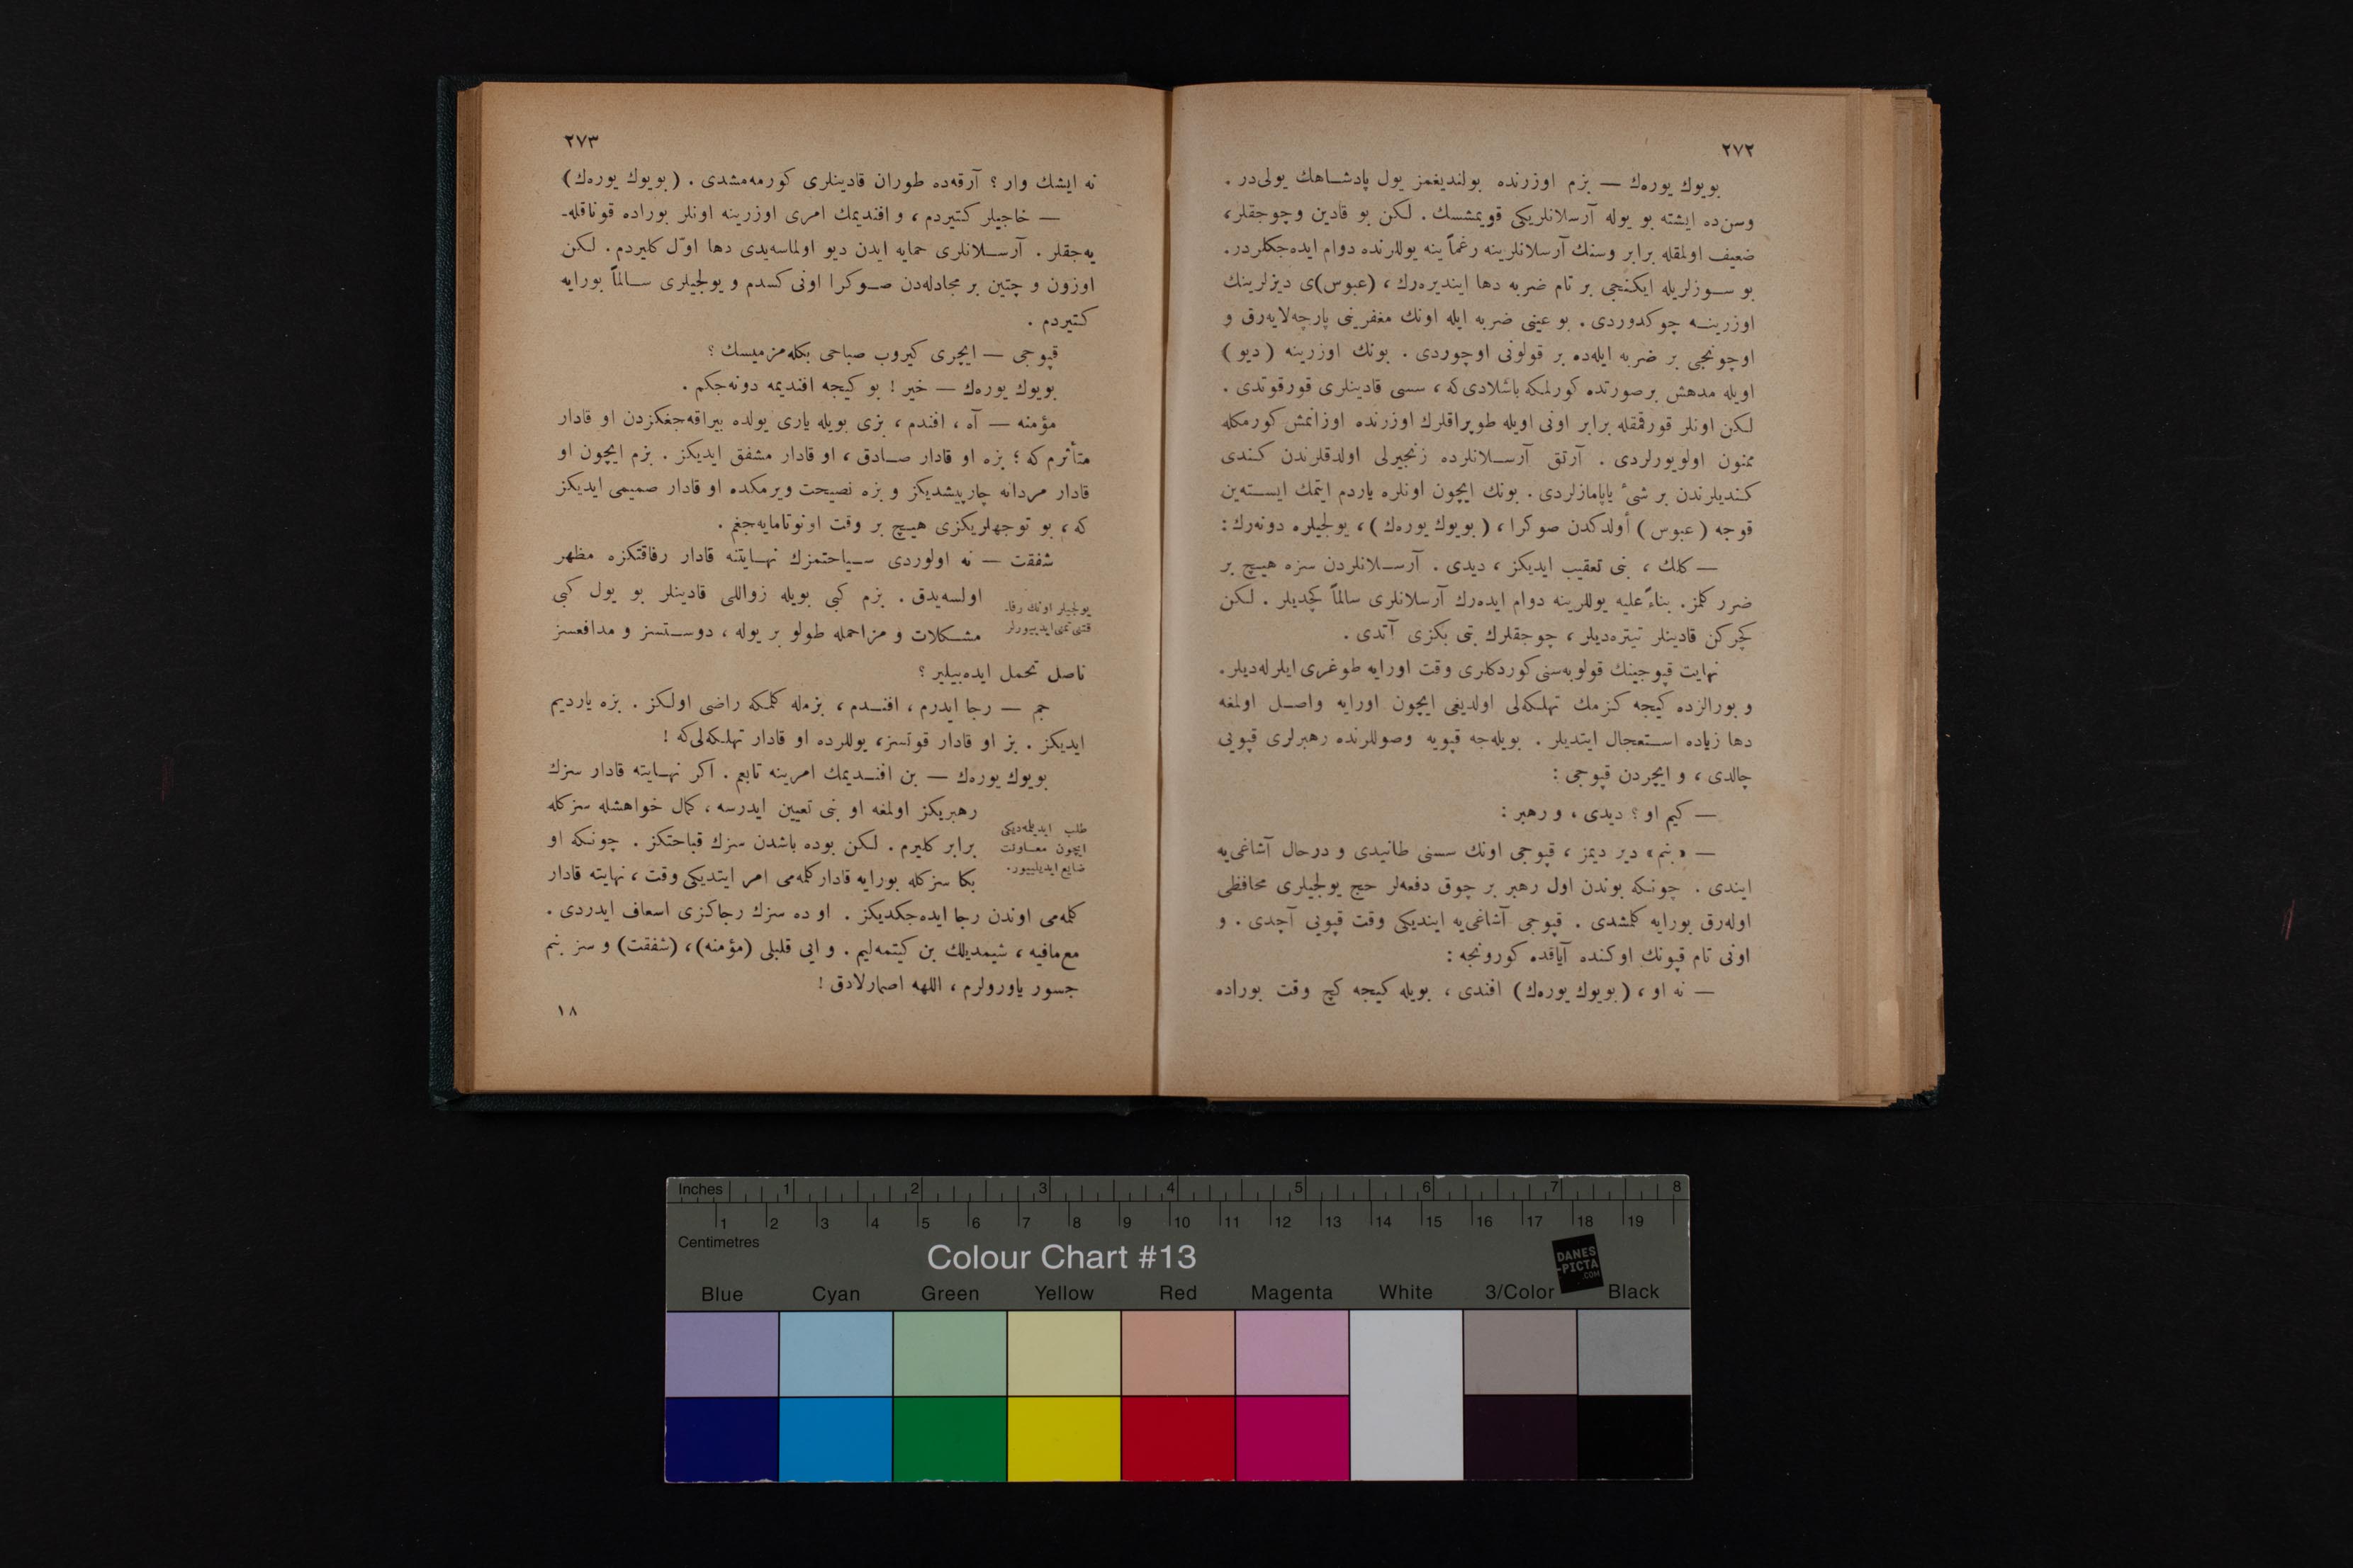 ٢٧٢
بويوك يوره‌ك — بزم اوزرنده بولنديغمز يول پادشاهك يولى‌در .
وسن‌ده ايشته بو يوله آرسلانلريكى قويمشسك . لكن بو قادين وچوجقلر،
ضعيف اولمقله برابر وسنك آرسلانلرينه رغماً ينه يوللرنده دوام ايده‌جكلردر.
بو سوزلريله ايكنجى بر تام ضربه دها اينديره‌رك ، (عبوس)ى ديزلرينك
اوزرينه چوكدوردى . بو عينى ضربه ايله اونك مغفرينى پارچه‌لايه‌رق و
اوچونجى بر ضربه ايله‌ده بر قولونى اوچوردى . بونك اوزرينه ( ديو )
اويله مدهش برصورتده كورلمكه باشلادى‌كه ، سسى قادينلرى قورقوتدى .
لكن اونلر قورقمقله برابر اونى اويله طوپراقلرك اوزرنده اوزانمش كورمكله
ممنون اولويورلردى . آرتق آرسلانلرده زنجيرلى اولدقلرندن كندى
كنديلرندن بر شىء ياپامازلردى . بونك ايچون اونلره ياردم ايتمك ايسته‌ين
قوجه ( عبوس ) أولدكدن صوكرا ، ( بويوك يوره‌ك ) ، يولجيلره دونه‌رك :
— كلك ، بنى تعقيب ايديكز ، ديدى . آرسلانلردن سزه هيچ بر
ضرر كلمز. بناءً عليه يوللرينه دوام ايده‌رك آرسلانلرى سالماً كچديلر . لكن
كچركن قادينلر تيتره‌ديلر ، چوجقلرك بتى بكزى آتدى .
نهايت قپوجينك قولوبه‌سنى كوردكلرى وقت اورايه طوغرى ايلرله‌ديلر.
و بورالزده كيجه كزمك تهلكه‌لى اولديغى ايچون اورايه واصل اولمغه
دها زياده استعجال ايتديلر . بويله‌جه قپويه وصوللرنده رهبرلرى قپويى
چالدى ، و ايچردن قپوجى :
— كيم او ؟ ديدى ، و رهبر :
— «بنم» دير ديمز ، قپوجى اونك سسنى طانيدى و درحال آشاغى‌يه
ايندى . چونكه بوندن اول رهبر بر چوق دفعه‌لر حج يولجيلرى محافظى
اوله‌رق بورايه كلمشدى . قپوجى آشاغى‌يه اينديكى وقت قپويى آچدى . و
اونى تام قپونك اوكنده آياقده كورونجه :
— نه او ، ( بويوك يوره‌ك ) افندى ، بويله كيجه كچ وقت بوراده
٢٧٣
نه ايشك وار ؟ آرقه‌ده طوران قادينلرى كورمه‌مشدى . ( بويوك يوره‌ك )
— خاجيلر كتيردم ، و افنديمك امرى اوزرينه اونلر بوراده قوناقله-
يه‌جقلر . آرسلانلرى حمايه ايدن ديو اولماسه‌يدى دها اوّل كليردم . لكن
اوزون و چتين بر مجادله‌دن صوكرا اونى كسدم و يولجيلرى سالماً بورايه
كتيردم .
قپوجى — ايچرى كيروب صباحى بكله‌مزميسك ؟
بويوك يوره‌ك — خير ! بو كيجه افنديمه دونه‌جكم .
مؤمنه — آه ، افندم ، بزى بويله يارى يولده بيراقه‌جغكزدن او قادار
متأثرم كه ؛ بزه او قادار صادق ، او قادار مشفق ايديكز . بزم ايچون او
قادار مردانه چارپيشديكز و بزه نصيحت ويرمكده او قادار صميمى ايديكز
كه ، بو توجهلريكزى هيچ بر وقت اونوتامايه‌جغم .
شفقت — نه اولوردى سياحتمزك نهايتنه قادار رفاقتكزه مظهر
اولسه‌يدق . بزم كبى بويله زواللى قادينلر بو يول كبى
يولجيلر اونك رفا-
قتنى تمنى ايدييورلر
مشكلات و مزاحمله طولو بر يوله ، دوستسز و مدافعسز
ناصل تحمل ايده‌بيلير ؟
جم — رجا ايدرم ، افندم ، بزمله كلمكه راضى اولكز . بزه يارديم
ايديكز . بز او قادار قوتسز، يوللرده او قادار تهلكه‌لى‌كه !
بويوك يوره‌ك — بن افنديمك امرينه تابعم . اكر نهايته قادار سزك
رهبريكز اولمغه او بنى تعيين ايدرسه ، كمال خواهشله سزكله
طلب ايديلمه‌ديكى
ايچون معاونت
ضايع ايديلييور.
برابر كليرم . لكن بوده باشدن سزك قباحتكز . چونكه او
بكا سزكله بورايه قادار كلمه‌مى امر ايتديكى وقت ، نهايته قادار
كلمه‌مى اوندن رجا ايده‌جكديكز . او ده سزك رجاكزى اسعاف ايدردى .
مع‌مافيه ، شيمديلك بن كيتمه‌ليم . و ايى قلبلى (مؤمنه) ، (شفقت) و سز بنم
جسور ياورولرم ، اللهه اصمارلادق !
١٨
Inches 1 2 3 4 5 6 7 8
1 2 3 4 5 6 7 8 9 10 11 12 13 14 15 16 17 18 19
Centimetres
Colour Chart #13
DANES
-PICTA
.COM
Blue Cyan Green Yellow Red Magenta White 3/Color Black